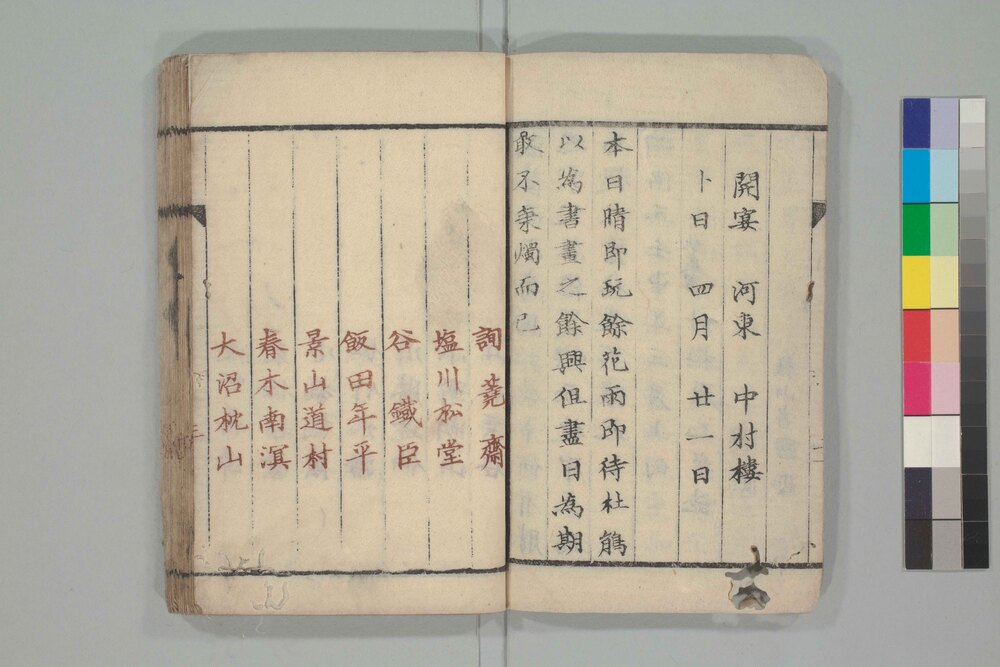 開宴 河東 中村樓
卜日四月廿一日
本日晴即玩餘花雨即待杜鵑
以為書畫之餘興但盡日為期
敢不秉燭而已
詢蕘齋
塩川松堂
谷鐵臣
飯田年平
景山道村
春木南溟
大沼枕山